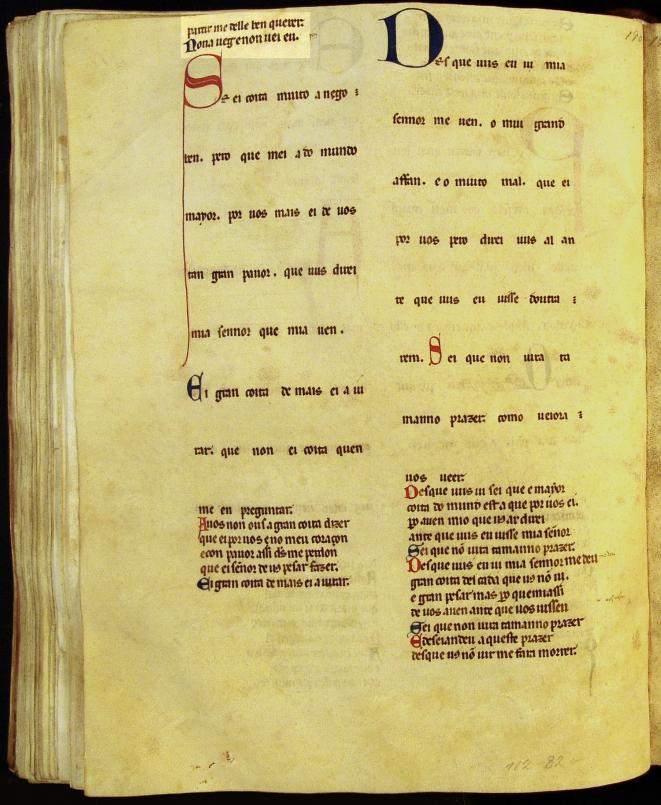 partir me delle ben querer.
Nona veg e non vei eu.
Se ei coita muito a nego
ben. pero que mei a do mundo
mayor. por uos mais ei de uos
tan gran pauor. que uus direi
mia sennor que mia uen.
Ei gran coita de mais ei a iu
rar. que non ei coita quen
me en preguntar.
A uos non ous a gran coita dizer
que ei por uos eno meu coraçon
e con pauor assi ds me perdon
que ei sẽnor de us pesar fazer.
Ei gran coita de mais ei a iurar.
Des que uus eu ui mia
sennor me uen. o mui grand
affan. e o muito mal. que ei
por uos pero direi uus al an
te que uus eu uisse doutra
rem. Sei que non uira ta
manno prazer. como ueiora
uos ueer.
Des que uus ui sei que e mayor
coita do mundo esta que por uos ei.
ꝑo auen mio que us ar direi
ante que uus eu uisse mia señor
Sei que nõ uira tamanno prazer.
Des que uus eu ui mia sennor me deu
gran coita ds cada que us nõ ui.
e gran pesar mas ꝑo que massi
de uos auen ante que uos uissen
Sei que non uira tamanno prazer
E deseiandeu a queste prazer
des que us nõ uir me fara morrer.